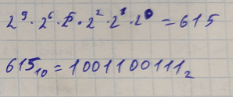 2⁹·2⁶·2⁵·2²·2¹·2⁰=615
615₁₀=1001100111₂